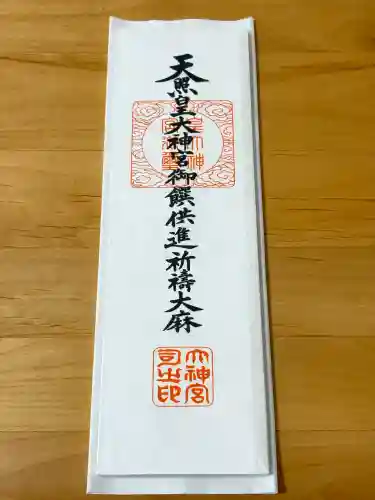 天照皇大神宮御饌供進祈禱大麻
大神宮
司之印